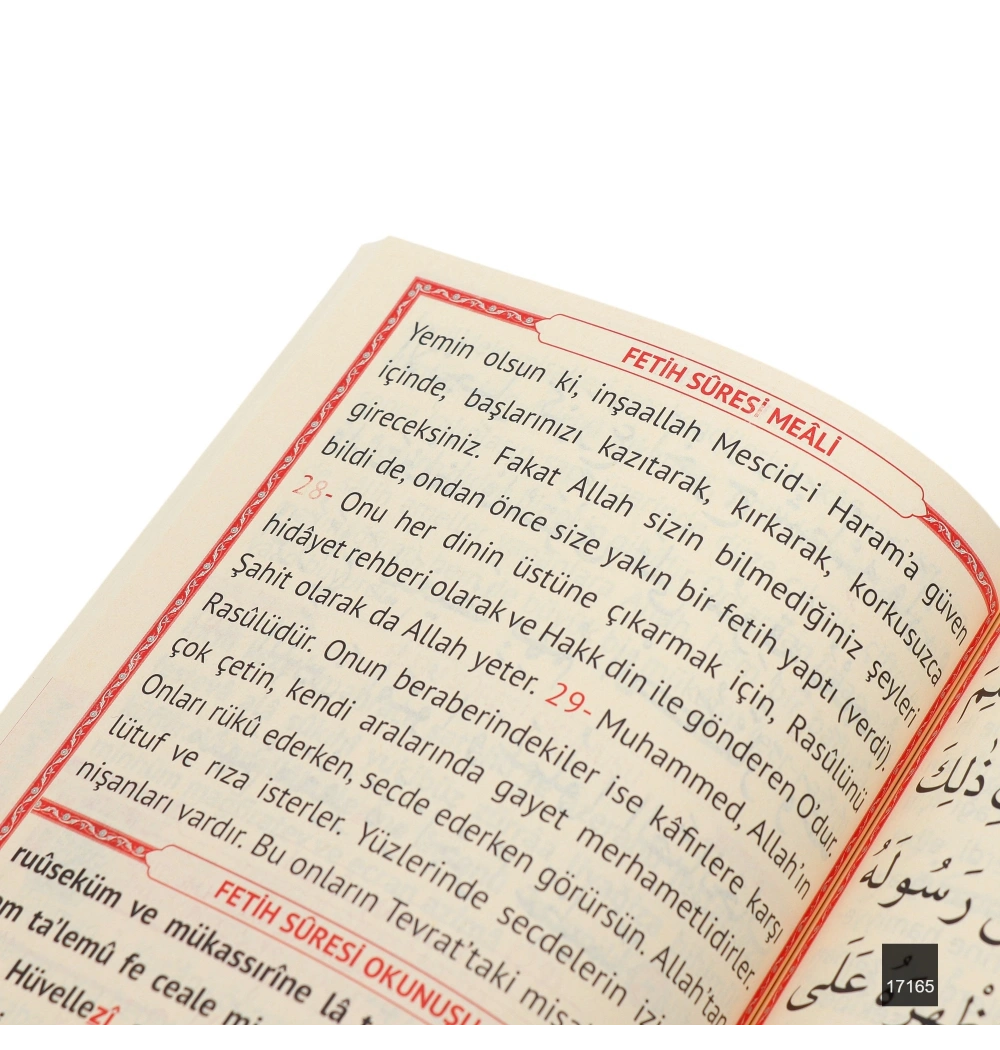 FETİH SÛRESİ MEÂLİ
Yemin olsun ki, inşaallah Mescid-i Haram'a güven
içinde, başlarınızı kazıtarak, kırkarak, korkusuzca
gireceksiniz. Fakat Allah sizin bilmediğiniz şeyleri
bildi de, ondan önce size yakın bir fetih yaptı (verdi).
28- Onu her dinin üstüne çıkarmak için, Rasûlünü
hidâyet rehberi olarak ve Hakk din ile gönderen O'dur.
Şahit olarak da Allah yeter. 29- Muhammed, Allah'ın
Rasûlüdür. Onun beraberindekiler ise kâfirlere karşı
çok çetin, kendi aralarında gayet merhametlidirler.
Onları rükû ederken, secde ederken görürsün. Allah'tan
lütuf ve rıza isterler. Yüzlerinde secdelerin izi
nişanları vardır. Bu onların Tevrat'taki
FETİH SÛRESİ OKUNUŞU
ruûseküm ve mükassırîne lâ
ta'lemû fe ceale
Hüvellezî
ذٰلِكَ
رَسُولَهُ
عَلَى
17165